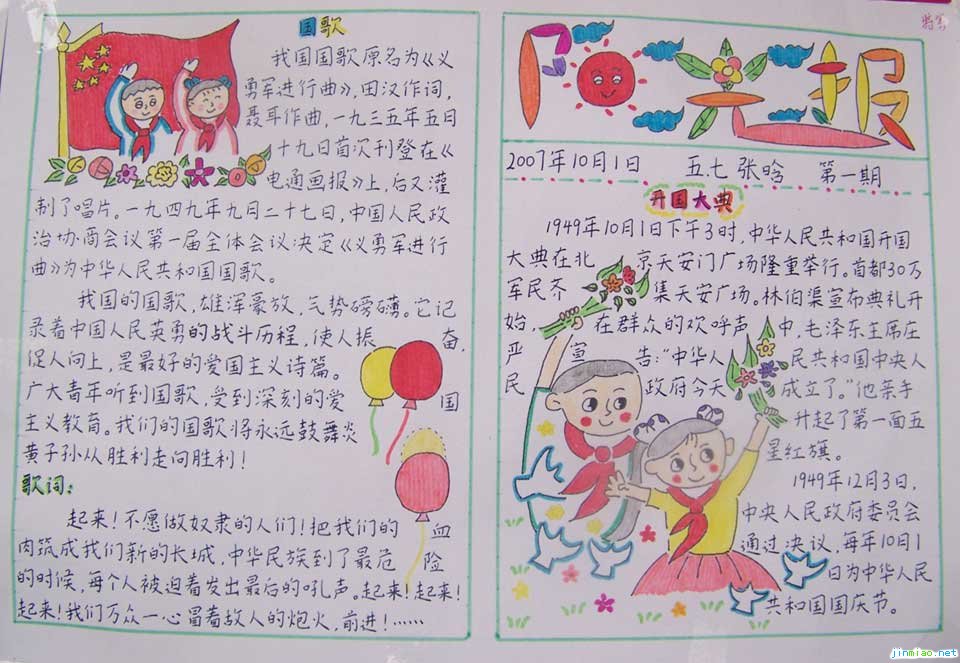 国歌
我国国歌原名为《义
勇军进行曲》,田汉作词,
聂耳作曲,一九三五年五日
十九日首次刊登在《
电通画报》上,后又灌
制了唱片。一九四九年九月二十七日,中国人民政
治协商会议第一届全体会议决定《义勇军进行
曲》为中华人民共和国国歌。
我国的国歌,雄浑豪放,气势磅礴。它记
录着中国人民英勇的战斗历程,使人振奋,
促人向上,是最好的爱国主义诗篇。
广大青年听到国歌,受到深刻的爱国
主义教育。我们的国歌将永远鼓舞炎
黄子孙从胜利走向胜利!
歌词:
起来!不愿做奴隶的人们!把我们的血
肉筑成我们新的长城,中华民族到了最危险
的时候,每个人被迫着发出最后的吼声。起来!起来!
起来!我们万众一心冒着敌人的炮火,前进!……
阳光报
2007年10月1日 五.七 张晗 第一期
开国大典
1949年10月1日下午3时,中华人民共和国开国
大典在北京天安门广场隆重举行。首都30万
军民齐集天安广场。林伯渠宣布典礼开
始,在群众的欢呼声中,毛泽东主席庄
严宣告:“中华人民共和国中央人
民政府今天成立了。”他亲手
升起了第一面五
星红旗。
1949年12月3日,
中央人民政府委员会
通过决议,每年10月1
日为中华人民
共和国国庆节。
jinmiao.net